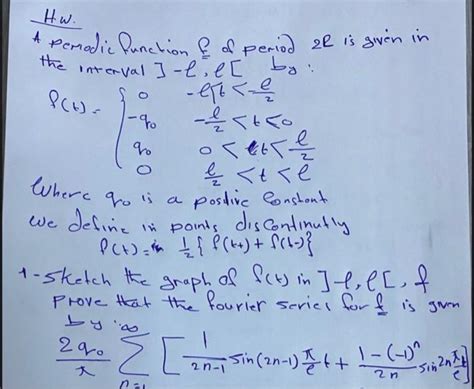 H.W.
A periodic function f of period 2ℓ is given in
the interval ]-ℓ, ℓ[ by:
f(t) = { 0 -ℓ < t < -ℓ/2
-q₀ -ℓ/2 < t < 0
q₀ 0 < t < ℓ/2
0 ℓ/2 < t < ℓ
Where q₀ is a positive Constant
we define in points discontinutly
f(t) = 1/2 { f(t+) + f(t-) }
1 - Sketch the graph of f(t) in ]-ℓ, ℓ[, f
prove that the fourier series for f is given
by:
2q₀/π ∑ n=1 ∞ [ 1/(2n-1) sin(2n-1) π/ℓ t + (1-(-1)ⁿ)/2n sin 2n π/ℓ t ]